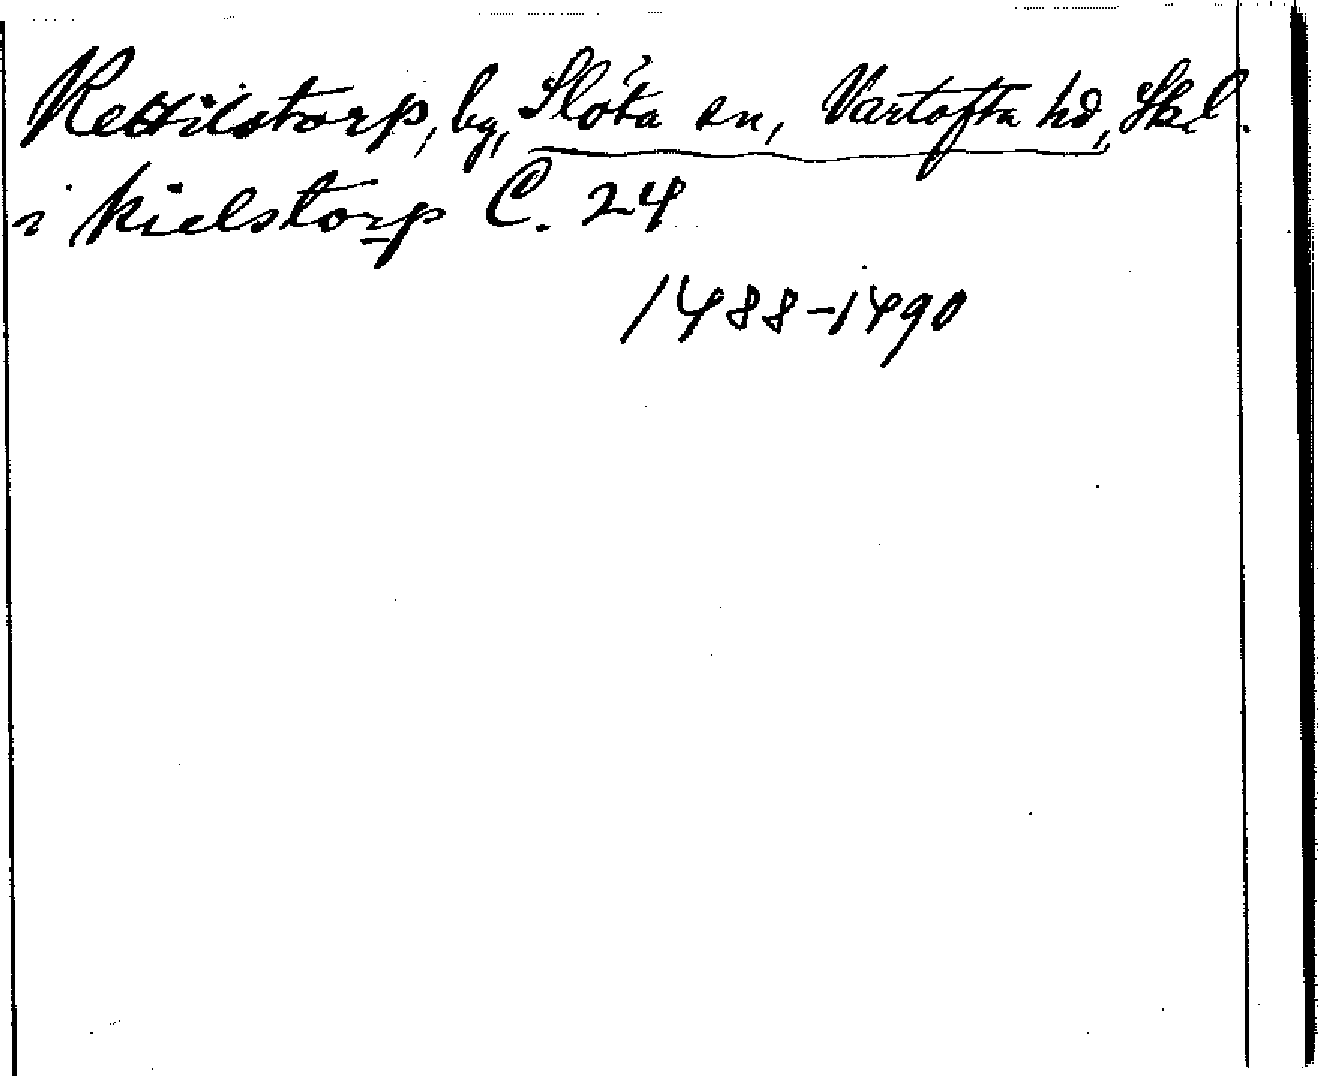 Kettilstorp, by, Slöta sn, Vartofta hd, Skal.
i kielstorp C. 24
1488-1490